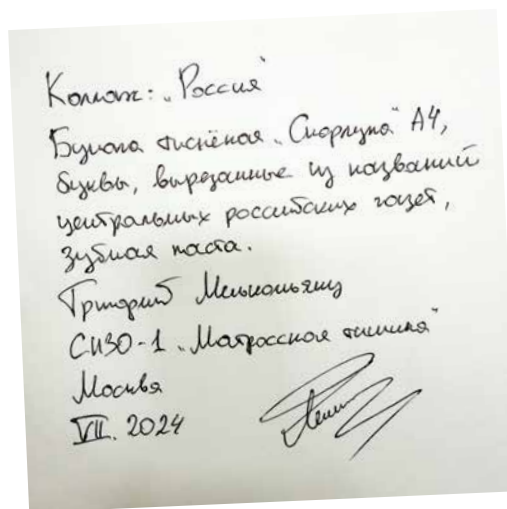 Коллаж: „Россия“
Бумага тиснёная „Скорлупа“ А4,
буквы, вырезанные из названий
центральных российских газет,
зубная паста.
Григорий Мельконьянц
СИЗО-1 „Матросская тишина“
Москва
VII. 2024